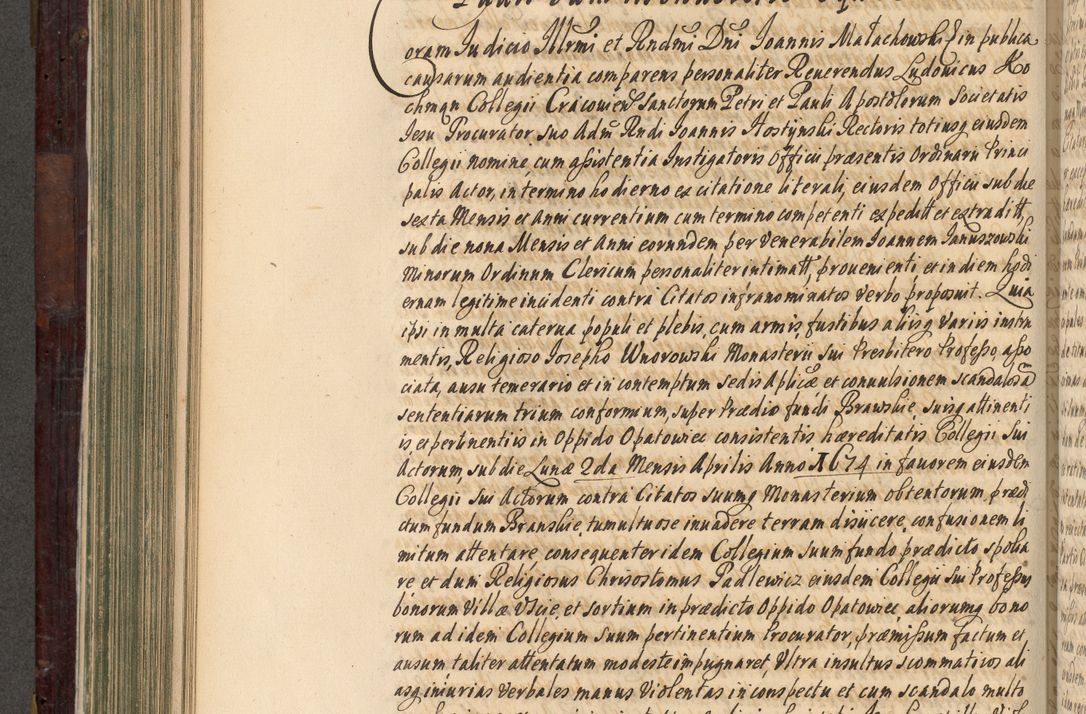 oram Judicio Illrmi et Rndmi Dni Joannis Małachowski in publica
causarum audientia comparens personaliter Reuerendus Ludouicus Ko
chman Collegii Cracouien Sanctorum Petri et Pauli Apostolorum Societatis
Jesu Procurator suo Adm Rndi Joannis Hostynski Rectoris totiusq eiusdem
Collegii nomine, cum assistentia Instigatoris Officii præsentis Ordinarii Princi
palis Actor, in termino hodierno ex citatione literali, eiusdem Officii sub die
sexta Mensis et Anni currentium cum termino competenti expeditt et extraditt,
sub die nona Mensis et Anni eorundem per Venerabilem Joannem Januszowski
Minorum Ordinum Clericum personaliter intimatt, prouenienti, et in diem hodi
ernam legitime incidenti contra Citatos infranominatos verbo proposuit. Quia
ipsi in multa caterua populi et plebis, cum armis, fustibus aliisq variis instru
mentis, Religioso Josepho Wnorowski Monasterii sui Presbitero Professo, asso
ciata, ausu temerario et in contemptum sedis Aplicæ et conuulsionem scandalosa
sententiarum trium conformium, super Prædio fundi Brawskie, suisq attinenti
is, et pertinentiis in Oppido Opatowiec consistentis hæreditatis Collegii sui
Actorum, sub die Lunæ 2da Mensis Aprilis Anno 1674 in fauorem eiusdem
Collegii sui Actorum contra Citatos suumq Monasterium obtentorum, prædi
ctum fundum Branskie, tumultuose inuadere terram disiicere, confusionem li
mitum attentare, consequenter idem Collegium suum fundo prædicto spolia
re, et dum Religiosus Chrisostomus Padlewicz eiusdem Collegii sui Professus
bonorum Villæ Vscie, et sortium in prædicto Oppido Opatowiec aliorumq bono
rum ad idem Collegium suum pertinentium Procurator, præmissum factum et
ausum, taliter attentatum modeste impugnaret, Vltra insultus scommaticos ali
asq iniurias verbales manus Violentas in conspectu et cum scandalo multo